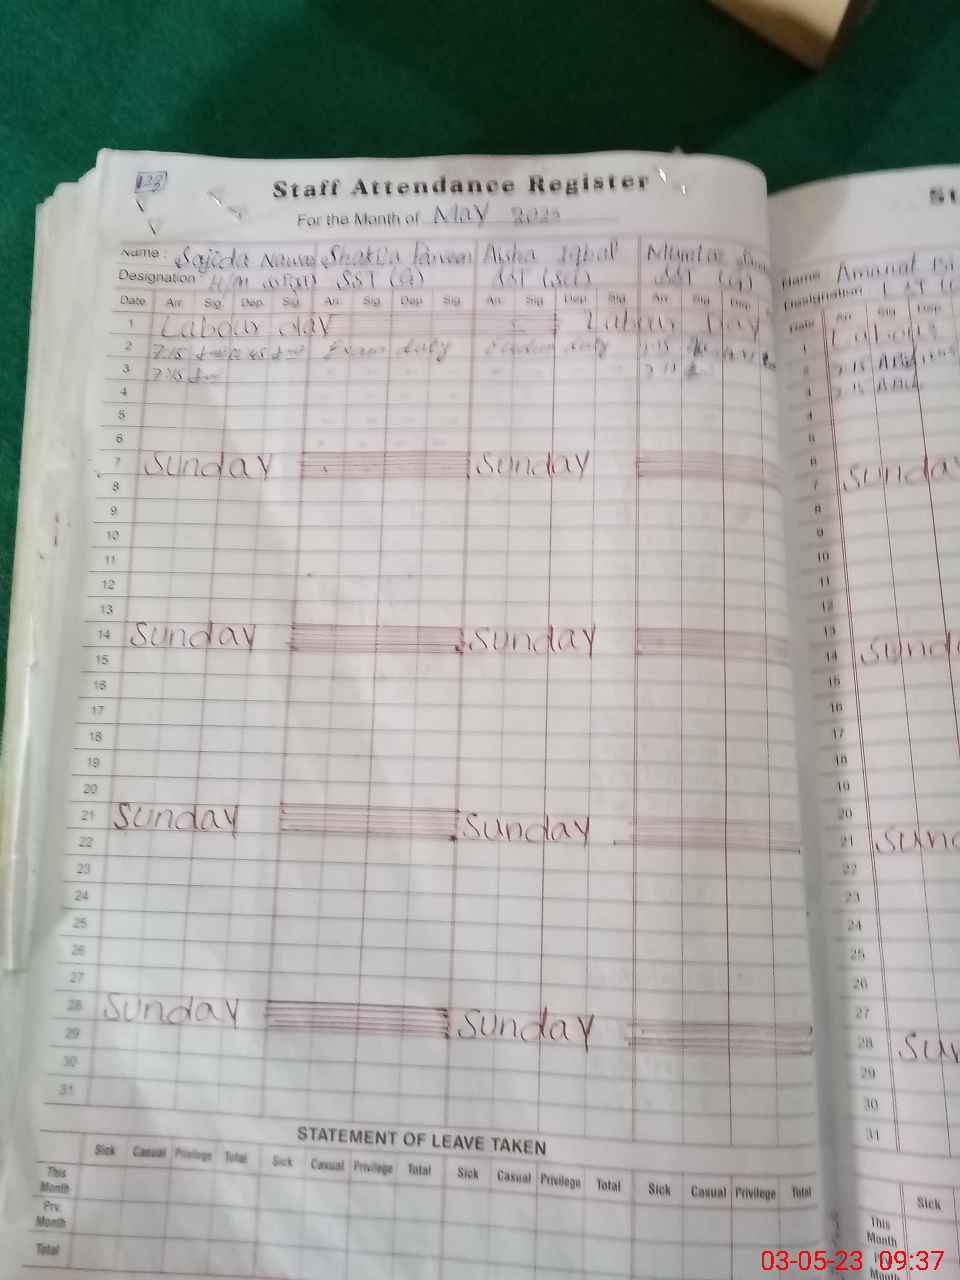 123
Staff Attendance Register
For the Month of May 2023
Name : Sajida Nawaz Shakila Parveen Aisha Iqbal Mumtaz
Designation H/M SST (G) SST (Sci) SST (G)
Date Arr. Sig. Dep. Sig. Arr. Sig. Dep. Sig. Arr. Sig. Dep. Sig. Arr. Sig. Dep.
1 Labour day Labour Day
2 7:15 Exam duty duty 7:15
3 7:15
4
5
6
7 Sunday Sunday
8
9
10
11
12
13
14 Sunday Sunday
15
16
17
18
19
20
21 Sunday Sunday
22
23
24
25
26
27
28 Sunday Sunday
29
30
31
STATEMENT OF LEAVE TAKEN
Sick Casual Privilege Total Sick Casual Privilege Total Sick Casual Privilege Total Sick Casual Privilege Total
This Month
Prv. Month
Total
St
Name Amanat Bi
Designation
Date Arr. Sig. Dep.
1 Labour
2 7:15
3 7:15
4
5
6
7 Sunday
8
9
10
11
12
13
14 Sunda
15
16
17
18
19
20
21 Sun
22
23
24
25
26
27
28 Sun
29
30
31
Sick
This Month
Prv. Month
03-05-23 09:37